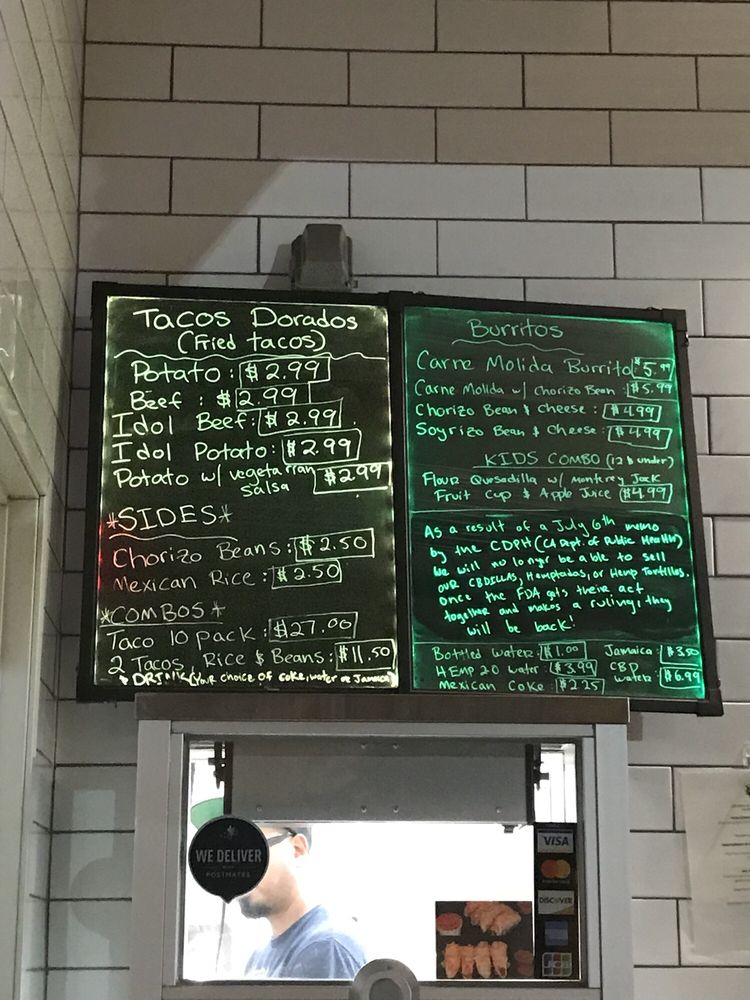 Tacos Dorados
(Fried tacos)
Potato: $2.99
Beef: $2.99
Idol Beef: $2.99
Idol Potato: $2.99
Potato w/ vegetarian $2.99
salsa
*SIDES*
Chorizo Beans: $2.50
Mexican Rice: $2.50
*COMBOS*
Taco 10 pack: $27.00
2 Tacos, Rice & Beans: $11.50
& DRINK (your choice of coke, water or Jamaica
Burritos
Carne Molida Burrito $5.99
Carne Molida w/ Chorizo Bean: $5.99
Chorizo Bean & Cheese: $4.99
Soyrizo Bean & Cheese: $4.99
KIDS COMBO (12 & under)
Flour Quesadilla w/ Monterey Jack
Fruit Cup & Apple Juice $4.99
As a result of a July 6th memo
by the CDPH (CA Dept. of Public Health)
we will no longer be able to sell
our CBDILLAS, Hemptadas, or Hemp Tortillas.
Once the FDA gets there act
together and makes a ruling, they
will be back!
Bottled water: $1.00 Jamaica: $3.50
HEMP 20 water: $3.99 CBD water: $6.99
Mexican Coke: $2.25
WE DELIVER
WITH
POSTMATES
VISA
DISCOVER
JCB